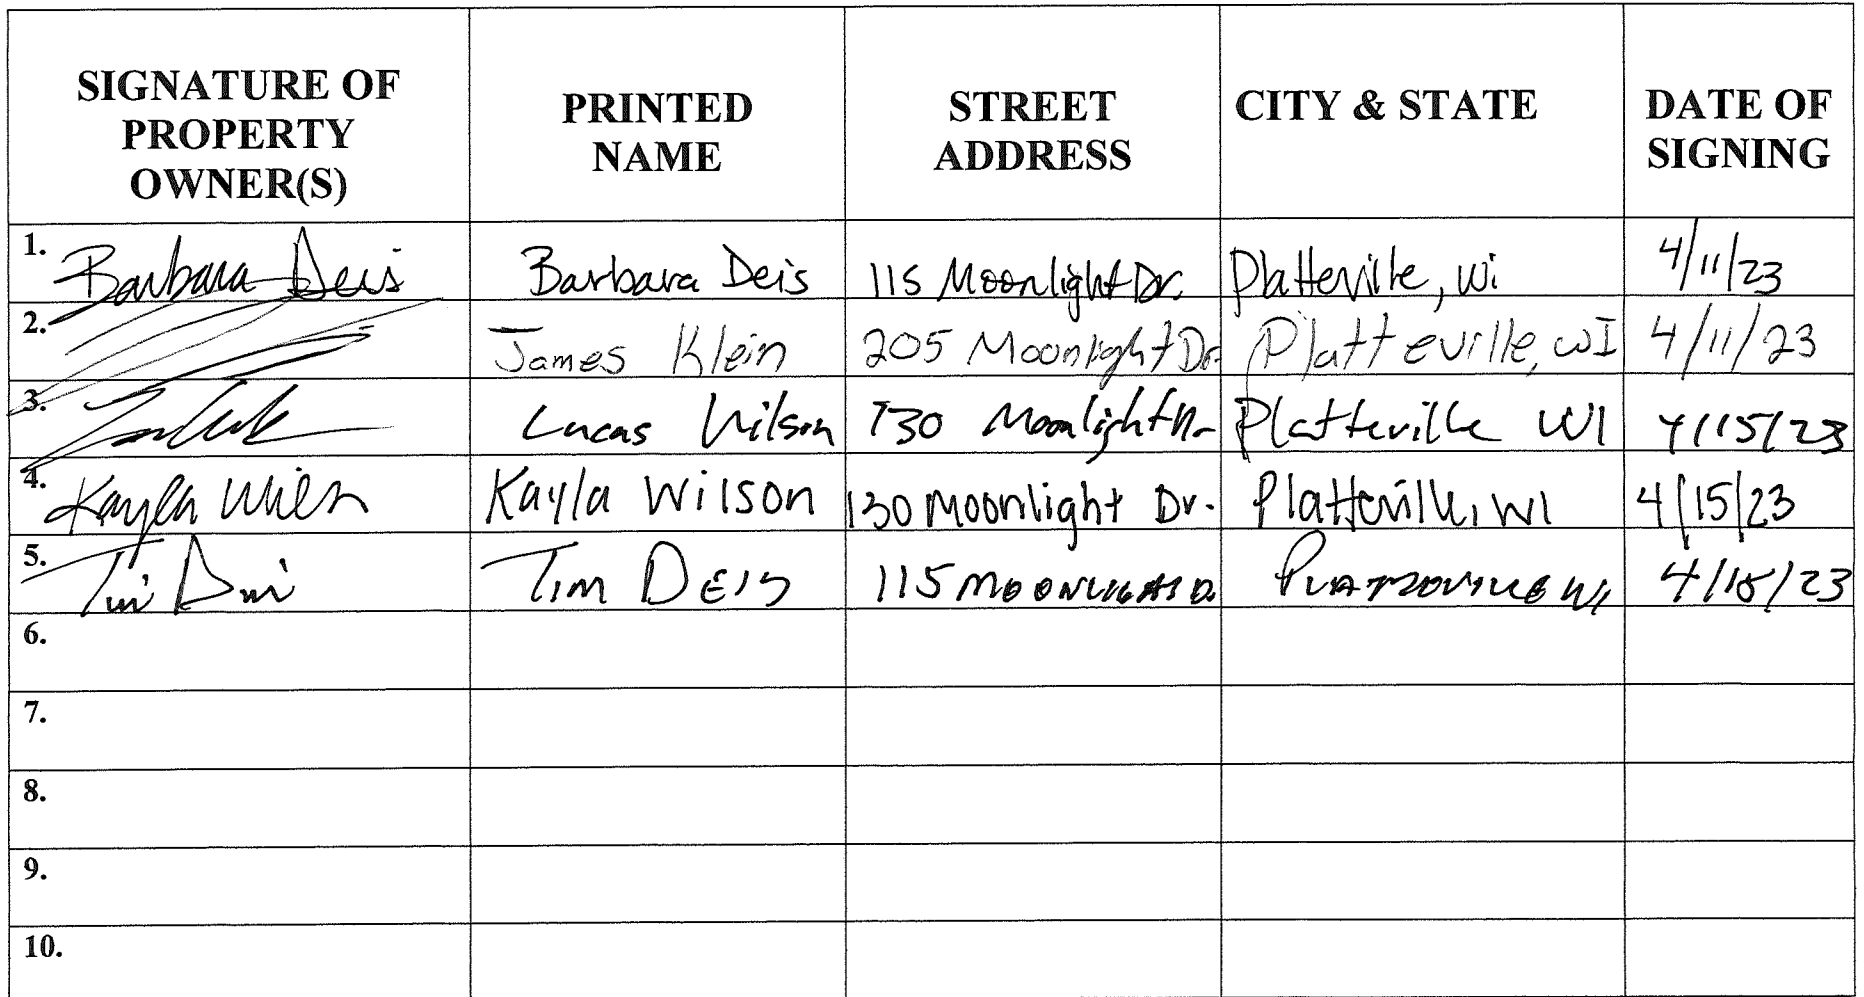 SIGNATURE OF
PROPERTY
OWNER(S)
PRINTED
NAME
STREET
ADDRESS
CITY & STATE
DATE OF
SIGNING
1. Barbara Deis Barbara Deis 115 Moonlight Dr. Platteville, Wi 4/11/23
2. James Klein 205 Moonlight Dr. Platteville, WI 4/11/23
3. Lucas Wilson 130 Moonlight Dr Platteville WI 4/15/23
4. Kayla Wilson Kayla Wilson 130 Moonlight Dr. Platteville, WI 4/15/23
5. Tim Deis Tim DEIS 115 MOONLIGHT D. PLATTEVILLE WI 4/15/23
6.
7.
8.
9.
10.